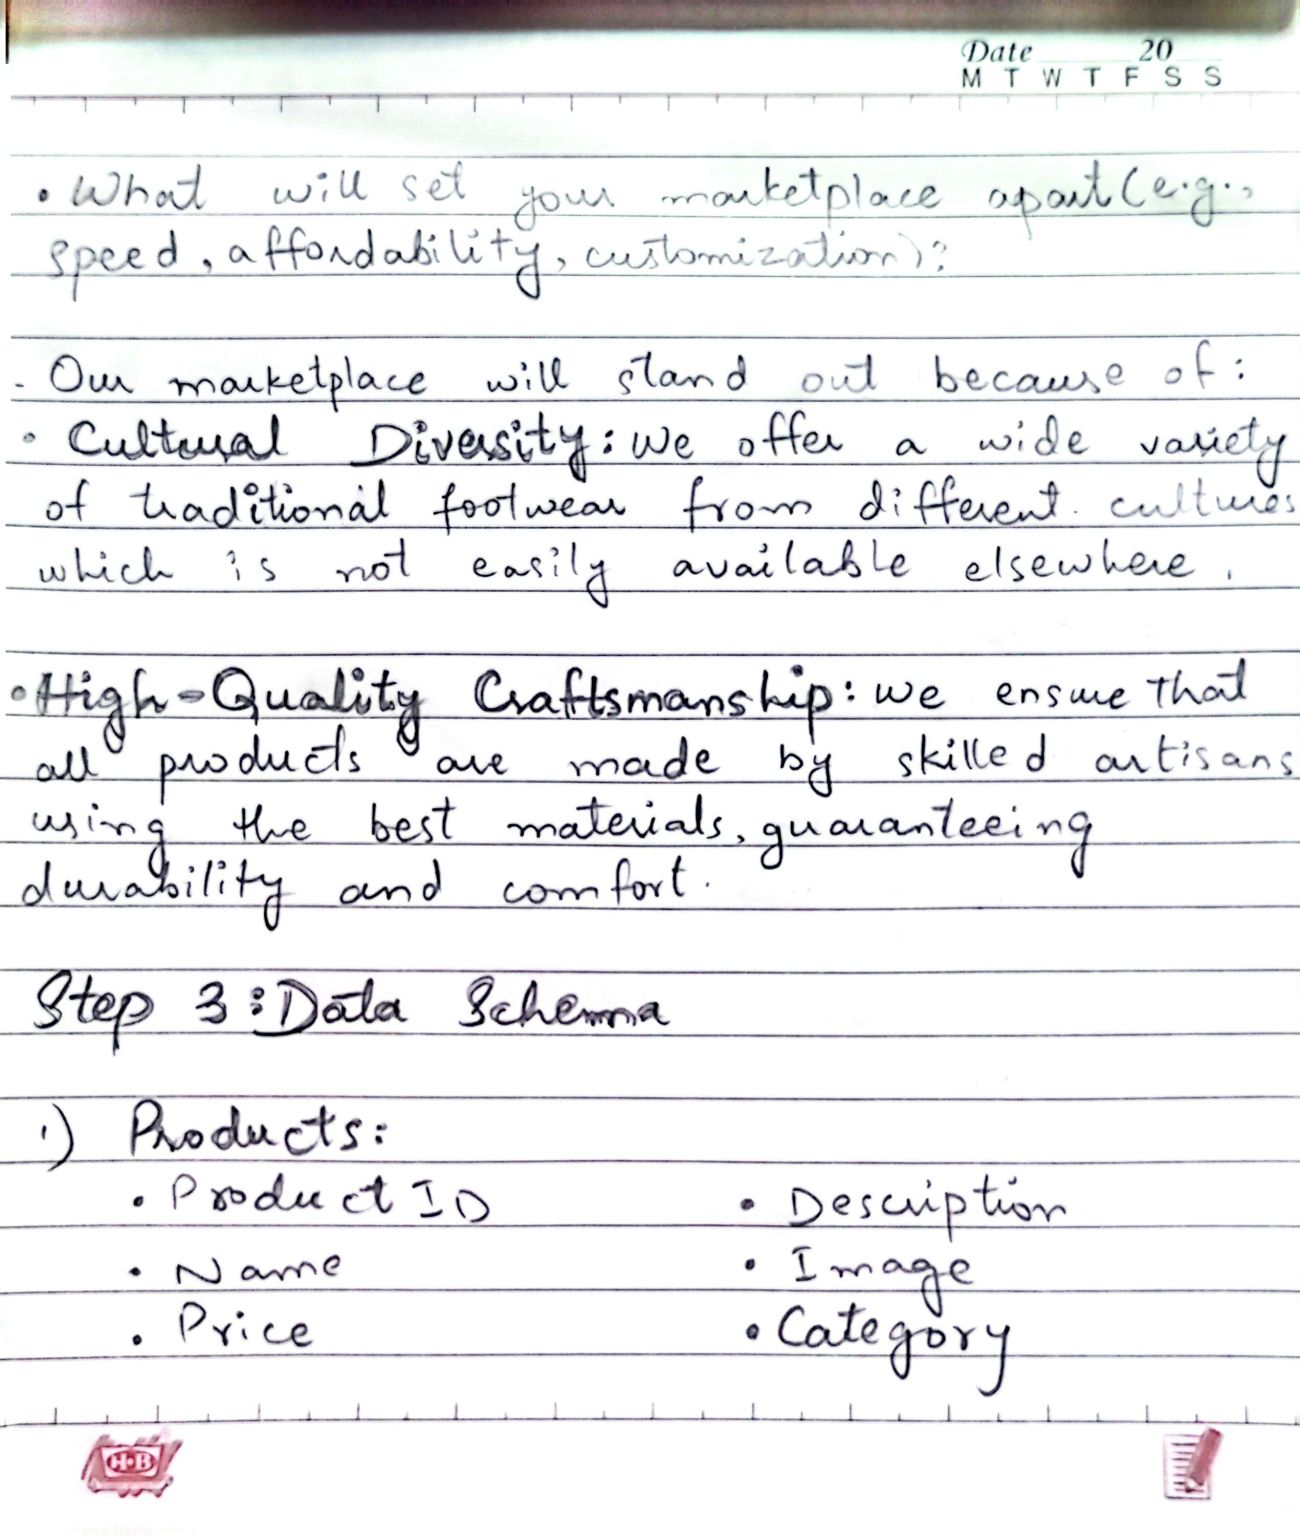 Date 20
M T W T F S S
• What will set your marketplace apart (e.g.,
speed, affordability, customization)?
- Our marketplace will stand out because of:
• Cultural Diversity: we offer a wide variety
of traditional footwear from different cultures
which is not easily available elsewhere.
• High-Quality Craftsmanship: we ensure that
all products are made by skilled artisans
using the best materials, guaranteeing
durability and comfort.
Step 3: Data Schema
1) Products:
• Product ID • Description
• Name • Image
• Price • Category
H•B